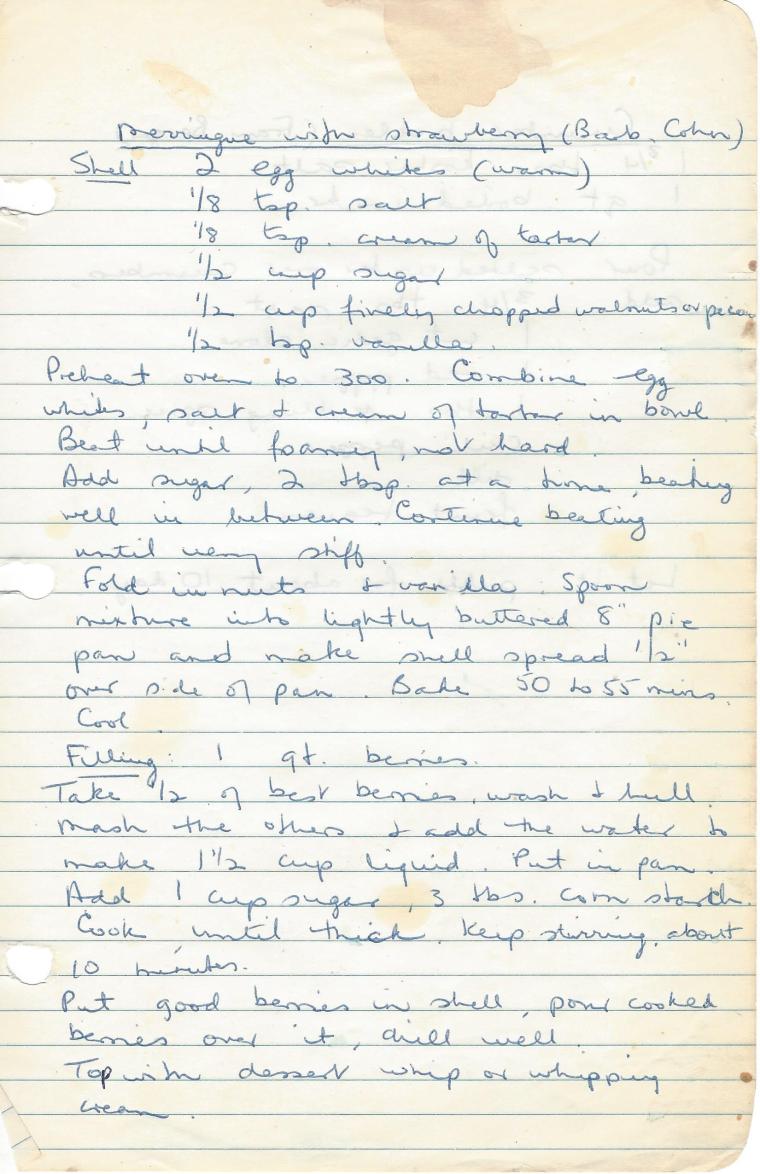 Merringue with strawberry (Barb. Cohn)
Shell 2 egg whites (warm)
1/8 tsp. salt
1/8 tsp. cream of tartar
1/2 cup sugar
1/2 cup finely chopped walnuts or pecan
1/2 tsp. vanilla.
Preheat oven to 300. Combine egg
whites, salt & cream of tartar in bowl.
Beat until foamy, not hard.
Add sugar, 2 tbsp. at a time, beating
well in between. Continue beating
until very stiff.
Fold in nuts & vanilla. Spoon
mixture into lightly buttered 8" pie
pan and make shell spread 1/2"
over side of pan. Bake 50 to 55 mins.
Cool.
Filling: 1 qt. berries.
Take 1/2 of best berries, wash & hull.
Mash the others & add the water to
make 1 1/2 cup liquid. Put in pan.
Add 1 cup sugar, 3 tbs. corn starch.
Cook until thick. Keep stirring, about
10 minutes.
Put good berries in shell, pour cooked
berries over it, chill well.
Top with dessert whip or whipping
cream.